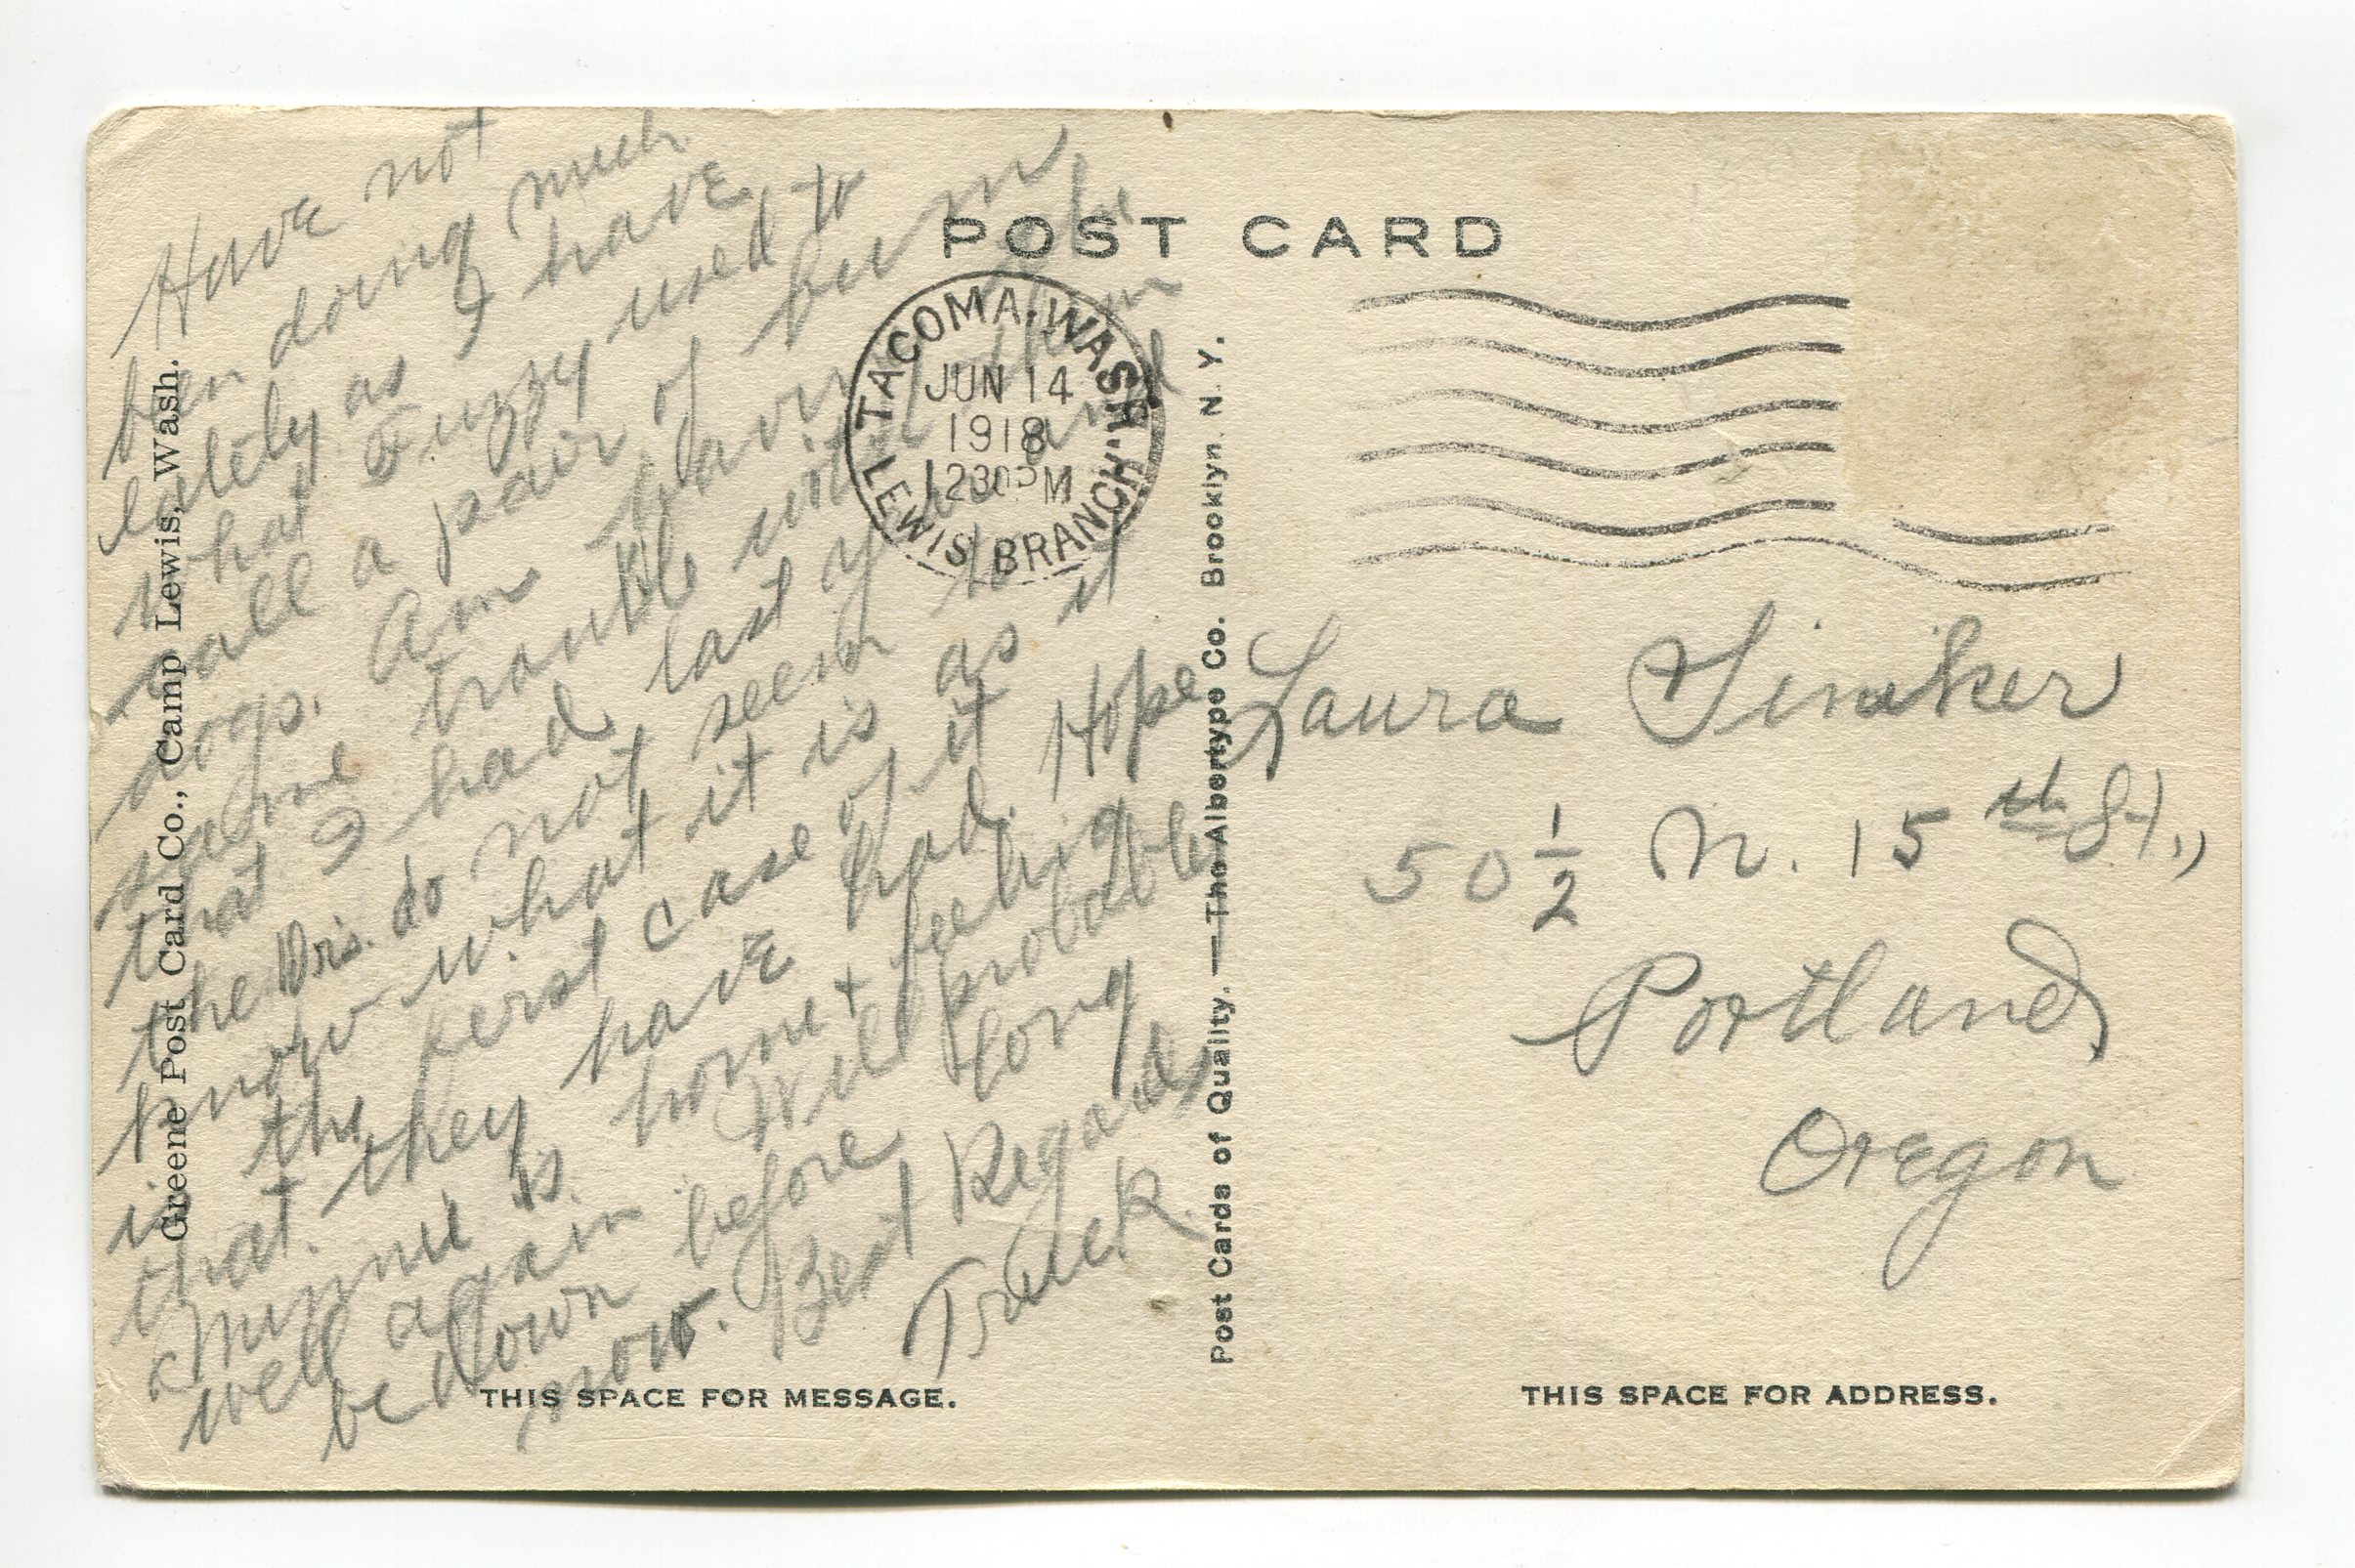 POST CARD
TACOMA, WASH.
JUN 14
1918
1230 PM
LEWIS BRANCH.
Have not
been doing much
lately as I have
what Fuzzy used to
call a pair of bum
dogs. Am having the
same trouble with them
that I had last year and
the Drs. do not seem to
know what it is as it
is the first case of it
that they have had. Hope
Minnie is home + feeling
well again Will probably
be down before long
now. Best Regards
Truck R.
Laura
50 1/2 N. 15th St.,
Portland,
Oregon
Greene Post Card Co., Camp Lewis, Wash.
Post Cards of Quality. — The Albertype Co. Brooklyn, N. Y.
THIS SPACE FOR MESSAGE.
THIS SPACE FOR ADDRESS.